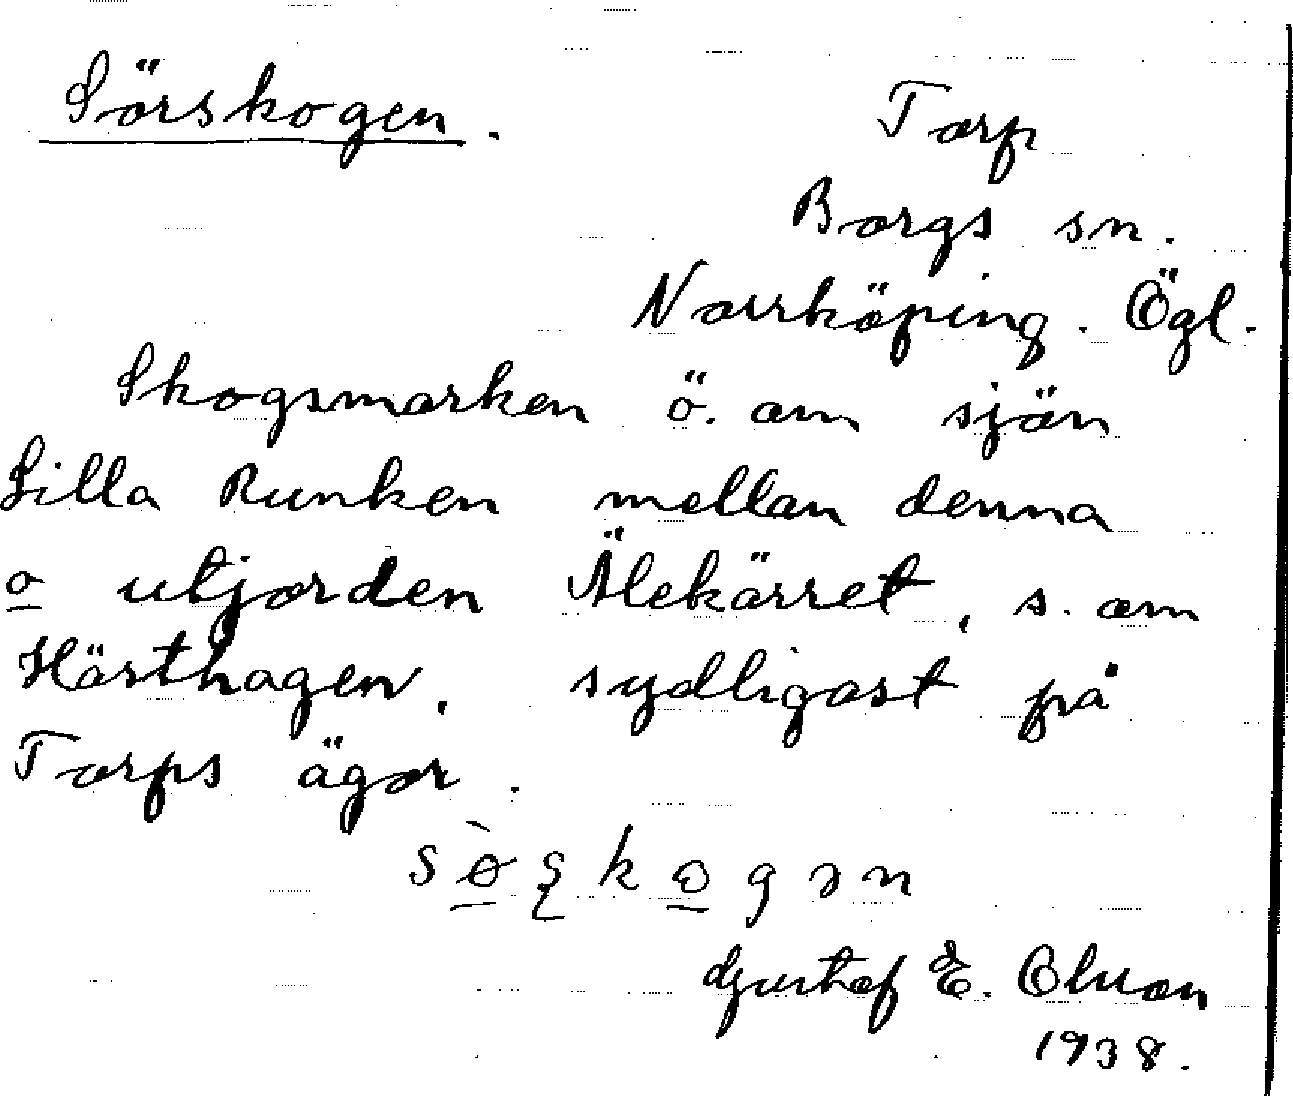 Sörskogen.
Torp
Borgs sn.
Norrköping. Ögl.
Skogsmarken ö. om sjön
Lilla Runken mellan denna
o utjorden Älekärret, s. om
Hästhagen, sydligast på
Torps ägor.
Gustaf E. Olsson
1938.